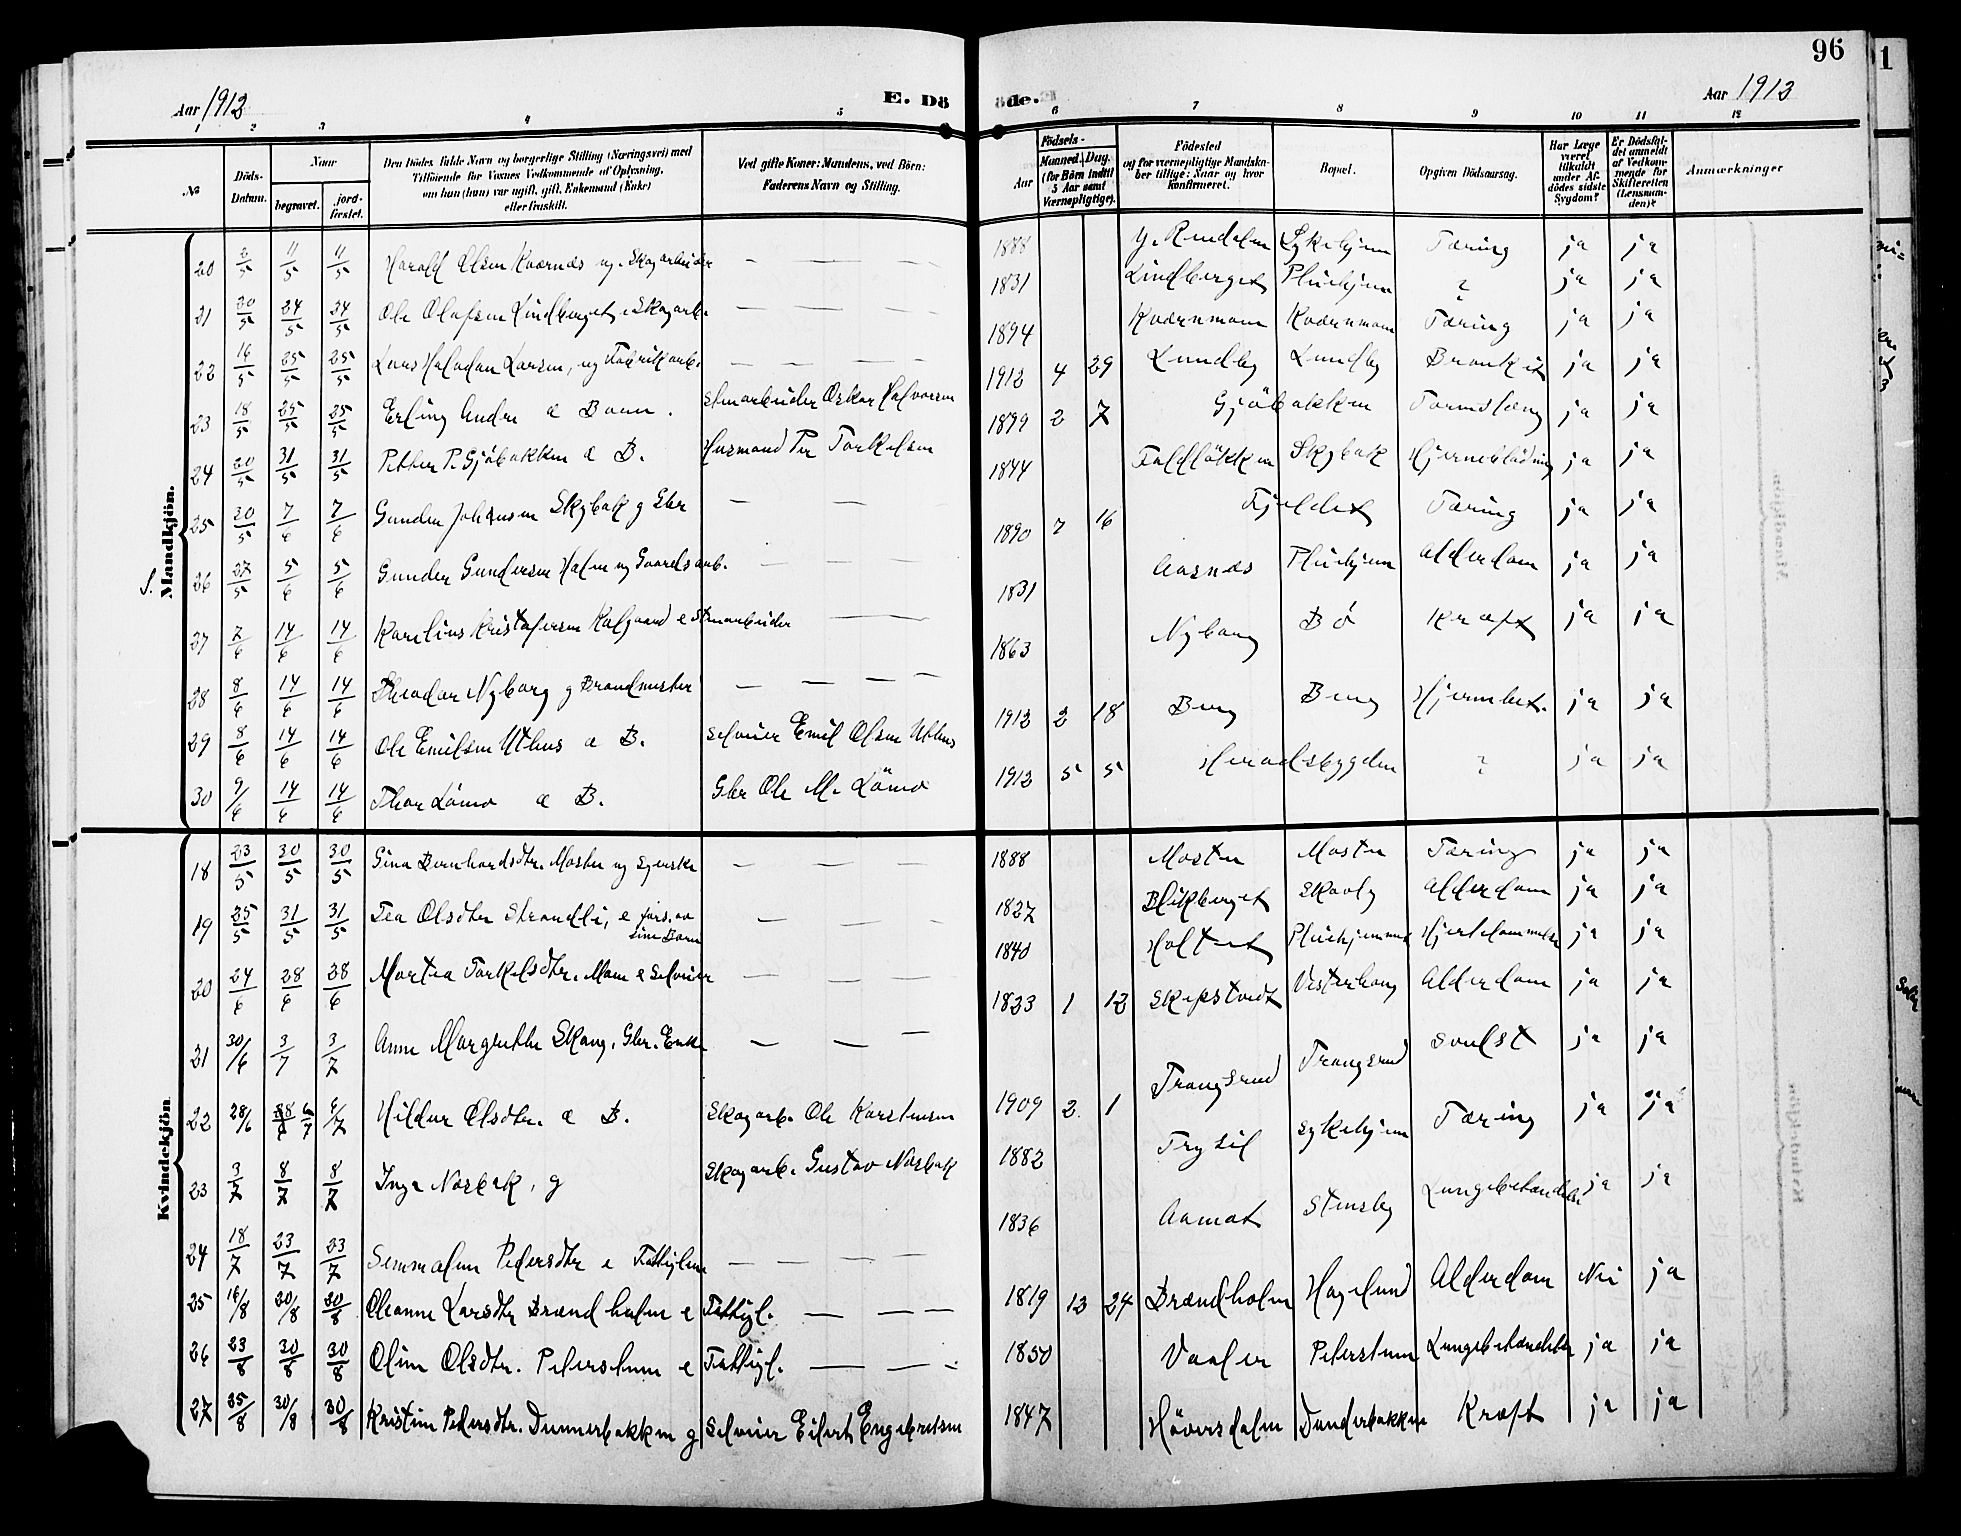 96
Aar 1912
E. Dö
de.
Aar 1912
1 2 3 4 5 6 7 8 9 10 11 12
No
Döds-Datum.
Naar
begravet.
jord-fæstet.
Den Dödes fulde Navn og borgerlige Stilling (Næringsvei) med
Tilföiende for Voxnes Vedkommende af Oplysning,
om han (hun) var ugift, gift, Enkemand (Enke)
eller fraskilt.
Ved gifte Koner: Mandens, ved Börn:
Faderens Navn og Stilling.
Födsels-
Aar
Maaned. Dag.
(for Börn indtil
5 Aar samt
Værnepligtige).
Födested
og for værnepligtige Mandskaber tillige: Naar og hvor
konfirmeret.
Bopæl.
Opgiven Dödsaarsag.
Har Læge
været
tilkaldt
under Afdödes sidste
Sygdom?
Er Dödsfaldet anmeldt
af Vedkommende for
Skifteretten
(Lensmanden)?
Anmærkninger
Mandkjön.
20 2/5 11/5 11/5 Harald Olsen Kværnæs ug. Skogarbeider — — — 1888 Y. Rendalen Sykehjem Tæring ja ja
21 20/5 24/5 24/5 Ole Olafsen Lindberget, e Skogarb. — — — 1831 Lindberget Pleiehjem ? ja ja
22 16/5 25/5 25/5 Lars Halvdan Larsen, ug Fabrikarb. — — — 1894 Kværnmoen Kværnmoen Tæring ja ja
23 18/5 25/5 25/5 Erling Andre æ Barn. Stenarbeider Oskar Halvorsen 1912 4 29 Lundby Lundby Bronkit ja ja
24 20/5 31/5 31/5 Petter P. Gjöbakken æ B. Husmand Per Torkelsen 1899 2 7 Gjöbakken Tarmslæng ja ja
25 30/5 7/6 7/6 Gunder Johansen Skybak g Gbr — — 1844 Faldløkken Skybak Hjerneblödning ja ja
26 27/5 5/6 5/6 Gunder Gundersen Holen ug Gaardsarb. — — 1890 7 16 Fjeldet Tæring ja ja
27 7/6 14/6 14/6 Karelius Kristofersen Kalgaard e Stenarbeider — — 1831 Aasnæs Pleiehjem Alderdom ja ja
28 8/6 14/6 14/6 Theodor Nyborg g Brandmester — — — — 1863 Nyborg Bö Kræft ja ja
29 8/6 14/6 14/6 Ole Emilsen Uthus æ B. Selveier Emil Olsen Uthus 1912 2 18 Berg Berg Hjernebet. ja ja
30 9/6 14/6 14/6 Thor Lömo æ B. Gbr Ole M. Lömo 1912 5 5 Heradsbygden ? ja ja
Kvindekjön.
18 23/5 30/5 30/5 Gina Bernhardsdtr. Moster ug Syerske — — — 1888 Mosten Mosten Tæring ja ja
19 25/5 31/5 31/5 Tea Olsdtr Strandli, e fors. av
sine Barn — — 1827 Blikberget Skavly Alderdom ja ja
20 24/6 28/6 28/6 Martea Torkelsdtr. Moen e Selveier — — — 1840 Holtet Pleiehjemmet Hjertelammelse ja ja
21 30/6 3/7 3/7 Anne Margrethe Skang, Gbr. Enke — — — 1823 1 12 Skipstvedt Vesterhaug Alderdom ja ja
22 28/6 6/7 6/7 Hildur Olsdtr. æ B. Skogarb. Ole Karstensen 1909 2 1 Trangsrud Trangsrud svulst ja ja
23 3/7 8/7 8/7 Inga Norbek, g Skogarb. Gustav Norbak 1882 Trysil Sykehjem Tæring ja ja
24 18/7 23/7 23/7 Semmaline Pedersdtr e Fattiglem — — — 1836 Aamot Stensby Lungebetændelse ja ja
25 16/8 20/8 20/8 Oleanne Larsdtr Brændholen e Fattigl. — — — 1819 12 24 Brændholen Hagelund Alderdom Nei ja
26 23/8 30/8 30/8 Oline Olsdtr. Peterstuen e Fattigl. — — — 1850 Vaaler Peterstuen Lungebetændelse ja ja
27 25/8 30/8 30/8 Kristine Pedersdtr. Dunnerbakken g Selveier Eilert Engebretsen 1847 Höversdalen Dunderbakken Kræft ja ja